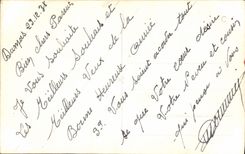 Damps 23.12.38
Bien chers Parents
Je Vous souhaite
les Meilleurs Souhaits et
Meilleurs Vœux de la
Bonne Heureuse Année
39. Vous soient accordé tout
ce que Votre cœur désire
Votre Neveu et cousin
qui pense à Vous